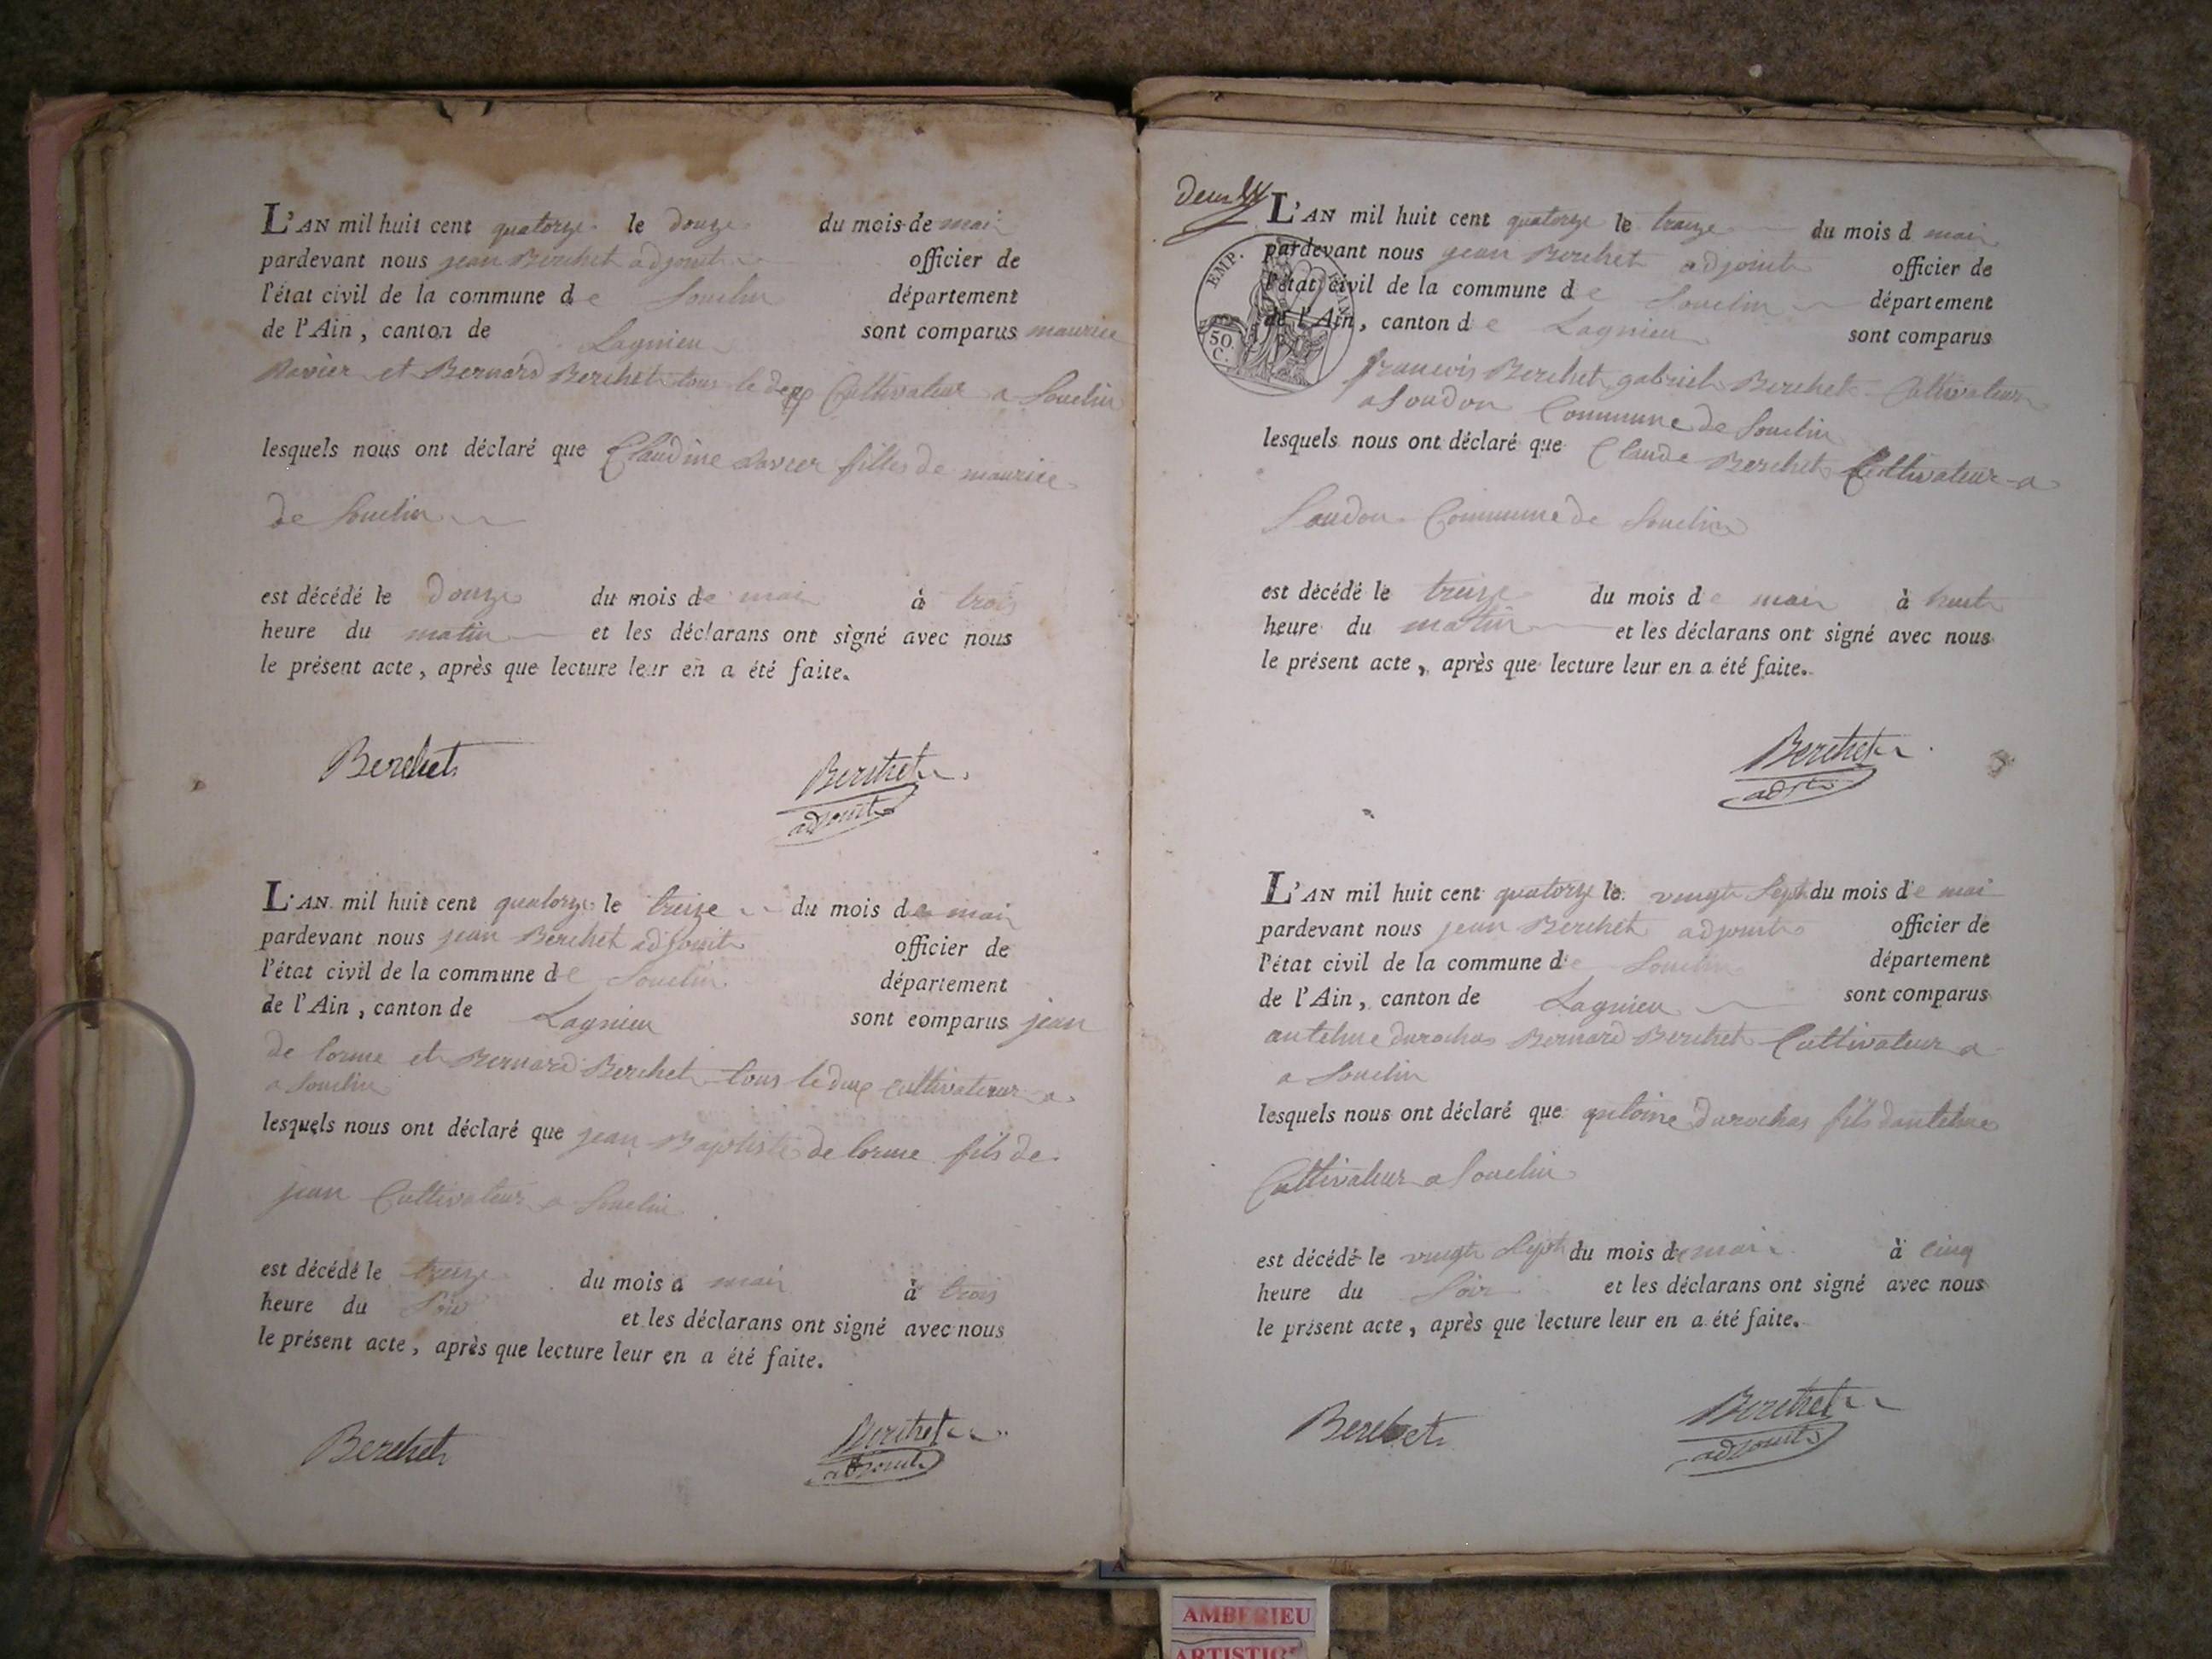 L'AN mil huit cent quatorze le douze du mois de mai
pardevant nous jean Berchet adjoint officier de
l'état civil de la commune de Souclin département
de l'Ain, canton de Lagnieu sont comparus maurice
Ravier et Bernard Berchet tous le deux Cultivateur a Souclin
lesquels nous ont déclaré que Claudine Ravier filles de maurice
de Souclin
est décédé le douze du mois de mai à trois
heure du matin et les déclarans ont signé avec nous
le présent acte, après que lecture leur en a été faite.
Berchet Berchet
adjoint
L'AN mil huit cent quatorze le treize du mois de mai
pardevant nous jean Berchet adjoint officier de
l'état civil de la commune de Souclin département
de l'Ain, canton de Lagnieu sont comparus jean
de lorme et Bernard Berchet tous le deux cultivateur a
a Souclin
lesquels nous ont déclaré que jean Baptiste de lorme fils de
jean Cultivateur a Souclin
est décédé le treize du mois d mai à trois
heure du Soir et les déclarans ont signé avec nous
le présent acte, après que lecture leur en a été faite.
Berchet Berchet
adjoint
EMP.
50.
C.
L'AN mil huit cent quatorze le du mois d mai
pardevant nous jean Berchet adjoint officier de
l'état civil de la commune de Souclin département
de l'Ain, canton de Lagnieu sont comparus
francois Berchet gabriel Berchet Cultivateur
a Soudon Commune de Souclin
lesquels nous ont déclaré que Claude Berchet Cultivateur a
Soudon Commune de Souclin
est décédé le treize du mois de mai à huit
heure du matin et les déclarans ont signé avec nous
le présent acte, après que lecture leur en a été faite.
Berchet
adjt
L'AN mil huit cent quatorze le vingt Sept du mois de mai
pardevant nous jean Berchet adjoint officier de
l'état civil de la commune de Souclin département
de l'Ain, canton de Lagnieu sont comparus
antelme durochas Bernard Berchet Cultivateur a
a Souclin
lesquels nous ont déclaré que antoine durochas fils dantelme
Cultivateur a Souclin
est décédé le vingt Sept du mois de mai à cinq
heure du Soir et les déclarans ont signé avec nous
le présent acte, après que lecture leur en a été faite.
Berchet Berchet
adjoint
AMBERIEU
ARTISTIQ